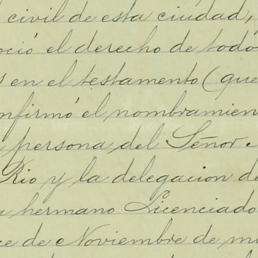 civil de esta ciudad,
oció el derecho de todo
s en el testamento (que
nfirmó el nombramien
persona del Señor
Rio y la delegacion de
e hermano Licenciado
ce de Noviembre de mi